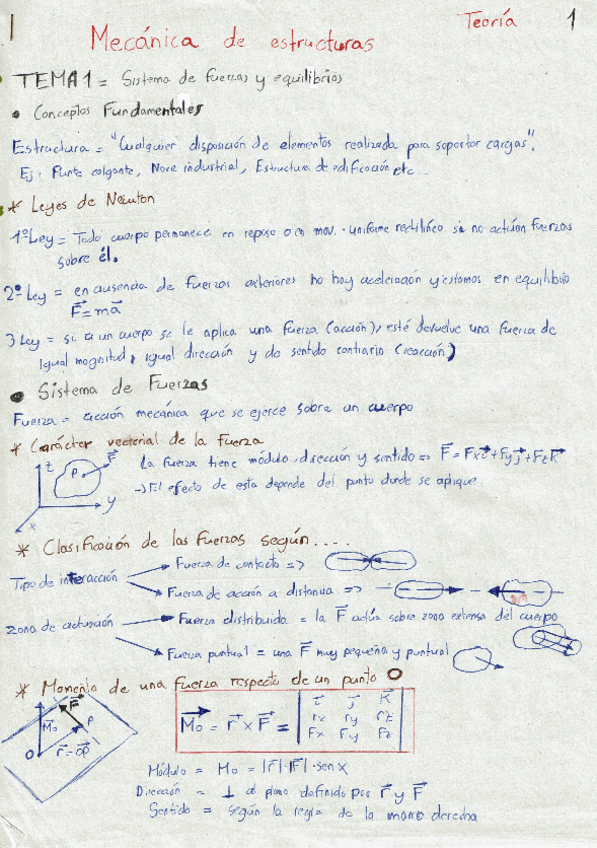 Teoría 1
Mecánica de estructuras
TEMA 1 = Sistema de fuerzas y equilibrios
• Conceptos Fundamentales
Estructura = "Cualquier disposición de elementos realizada para soportar cargas".
Ej: Punte colgante, Nave industrial, Estructura de edificación etc...
* Leyes de Newton
1ºLey = Todo cuerpo permanece en reposo o en mov. uniforme rectilíneo si no actúan fuerzas
sobre él.
2º Ley = en ausencia de fuerzas exteriores no hay aceleración y estamos en equilibrio
F⃗ = m a⃗
3 Ley = si a un cuerpo se le aplica una fuerza (acción), esté devuelve una fuerza de
igual magnitud, igual dirección y de sentido contrario (reacción)
• Sistema de Fuerzas
Fuerza = acción mecánica que se ejerce sobre un cuerpo
* Carácter vectorial de la fuerza
z P F⃗ y x
La fuerza tiene módulo, dirección y sentido => F⃗ = Fx i⃗ + Fy j⃗ + Fz k⃗
→ El efecto de esta depende del punto donde se aplique
* Clasificación de las Fuerzas según....
Tipo de interacción
Fuerza de contacto =>
Fuerza de acción a distancia =>
zona de actuación
Fuerza distribuida = la F⃗ actúa sobre zona extensa del cuerpo
Fuerza puntual = una F⃗ muy pequeña y puntual
* Momento de una fuerza respecto de un punto O
M⃗o F⃗ P O r⃗ = OP⃗
M⃗o = r⃗ x F⃗ =
i⃗ j⃗ k⃗
rx ry rz
Fx Fy Fz
Módulo = Mo = |r⃗| |F⃗| · sen x
Dirección = ⊥ al plano definido por r⃗ y F⃗
Sentido = según la regla de la mano derecha